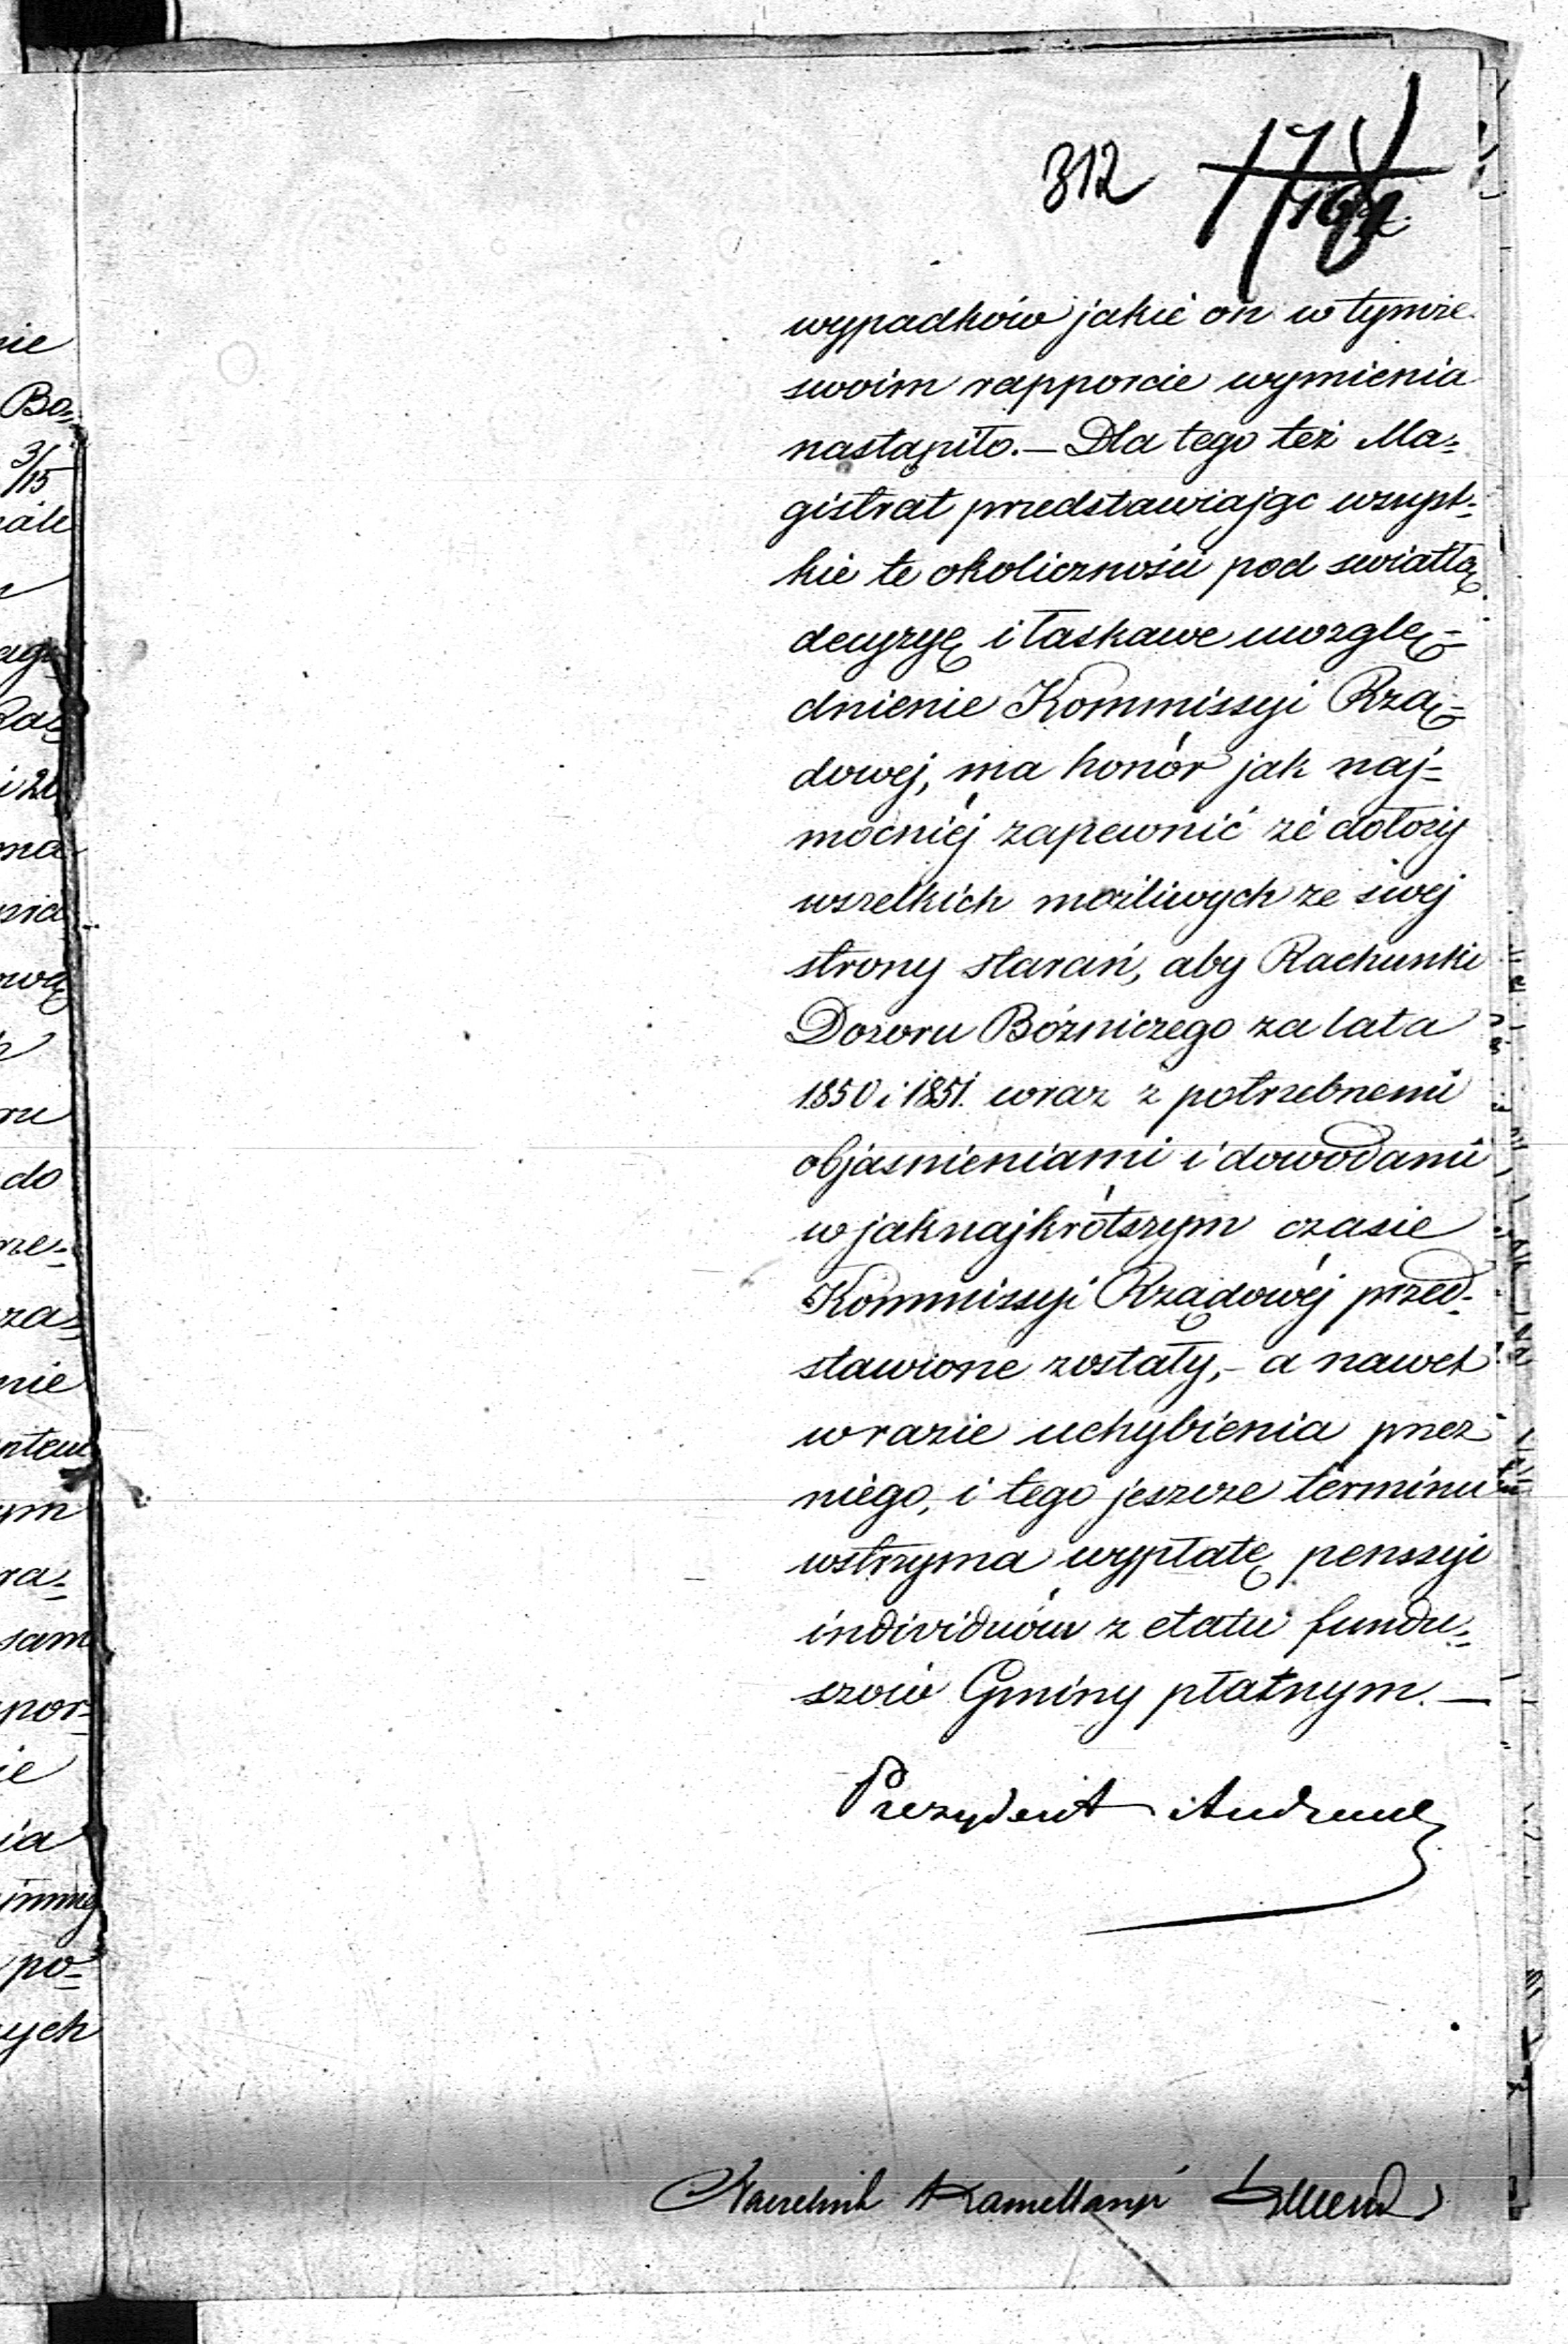 312
wypadków jakie on w tymże
swoim rapporcie wymienia
nastąpiło.— Dla tego też Ma-
gistrat przedstawiając wszyst-
kie te okoliczności pod swiatłą
decyzyę i łaskawe uwzglę-
dnienie Kommissyi Rzą-
dowej, ma honor jak naj-
mocniéj zapewnić że dołoży
wszelkich możliwych ze swej
strony starań, aby Rachunki
Dozoru Bóżniczego za lata
1850 i 1851. wraz z potrzebnemi
objasnieniami i dowodami
w jaknajkrótszym czasie
Kommissyi Rządowéj przed-
stawione zostały,- a nawet
w razie uchybienia przez
niego, i tego jeszcze terminu
wstrzyma wypłatę penssyi
individuów z etatu fundu-
szów Gminy płatnym.—
Prezydent
Naczelnik Kancellaryi
nie
Bo-
3/15
do
nie
ym
ra-
sam
por-
ie
ia
po-
ych